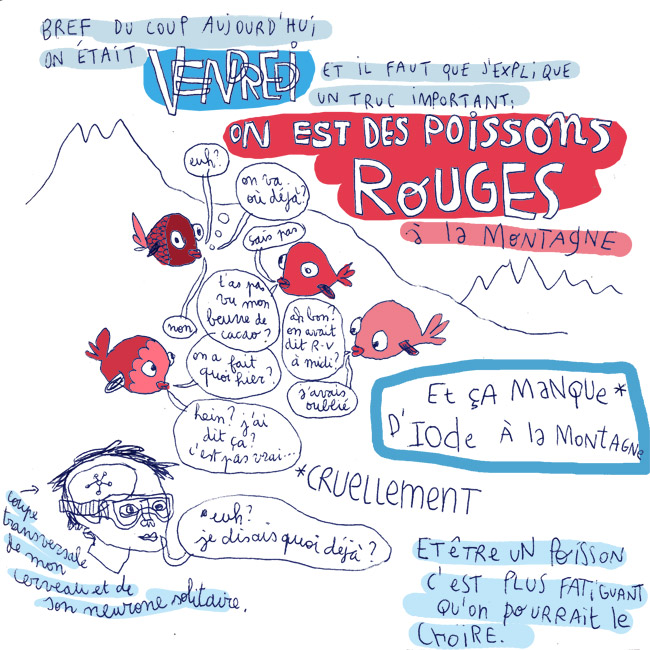 BREF DU COUP AUJOURD'HUI
ON ÉTAIT VENDREDI ET IL FAUT QUE J'EXPLIQUE
UN TRUC IMPORTANT:
ON EST DES POISSONS
ROUGES
à la MONTAGNE
euh?
on va
où déjà?
sais pas
t'as pas
vu mon
beurre de
cacao?
non
ah bon?
on avait
dit R-V
à midi?
on a fait
quoi hier?
j'avais
oublié
hein? j'ai
dit ça?
c'est pas vrai...
ET ÇA MANQUE*
D'IODE À la MONTAGNE
*CRUELLEMENT
euh?
je disais quoi déjà?
coupe
transversale
de mon
cerveau et de
son neurone solitaire.
ET ÊTRE UN POISSON
C'EST PLUS FATIGUANT
QU'ON POURRAIT le
CROIRE.